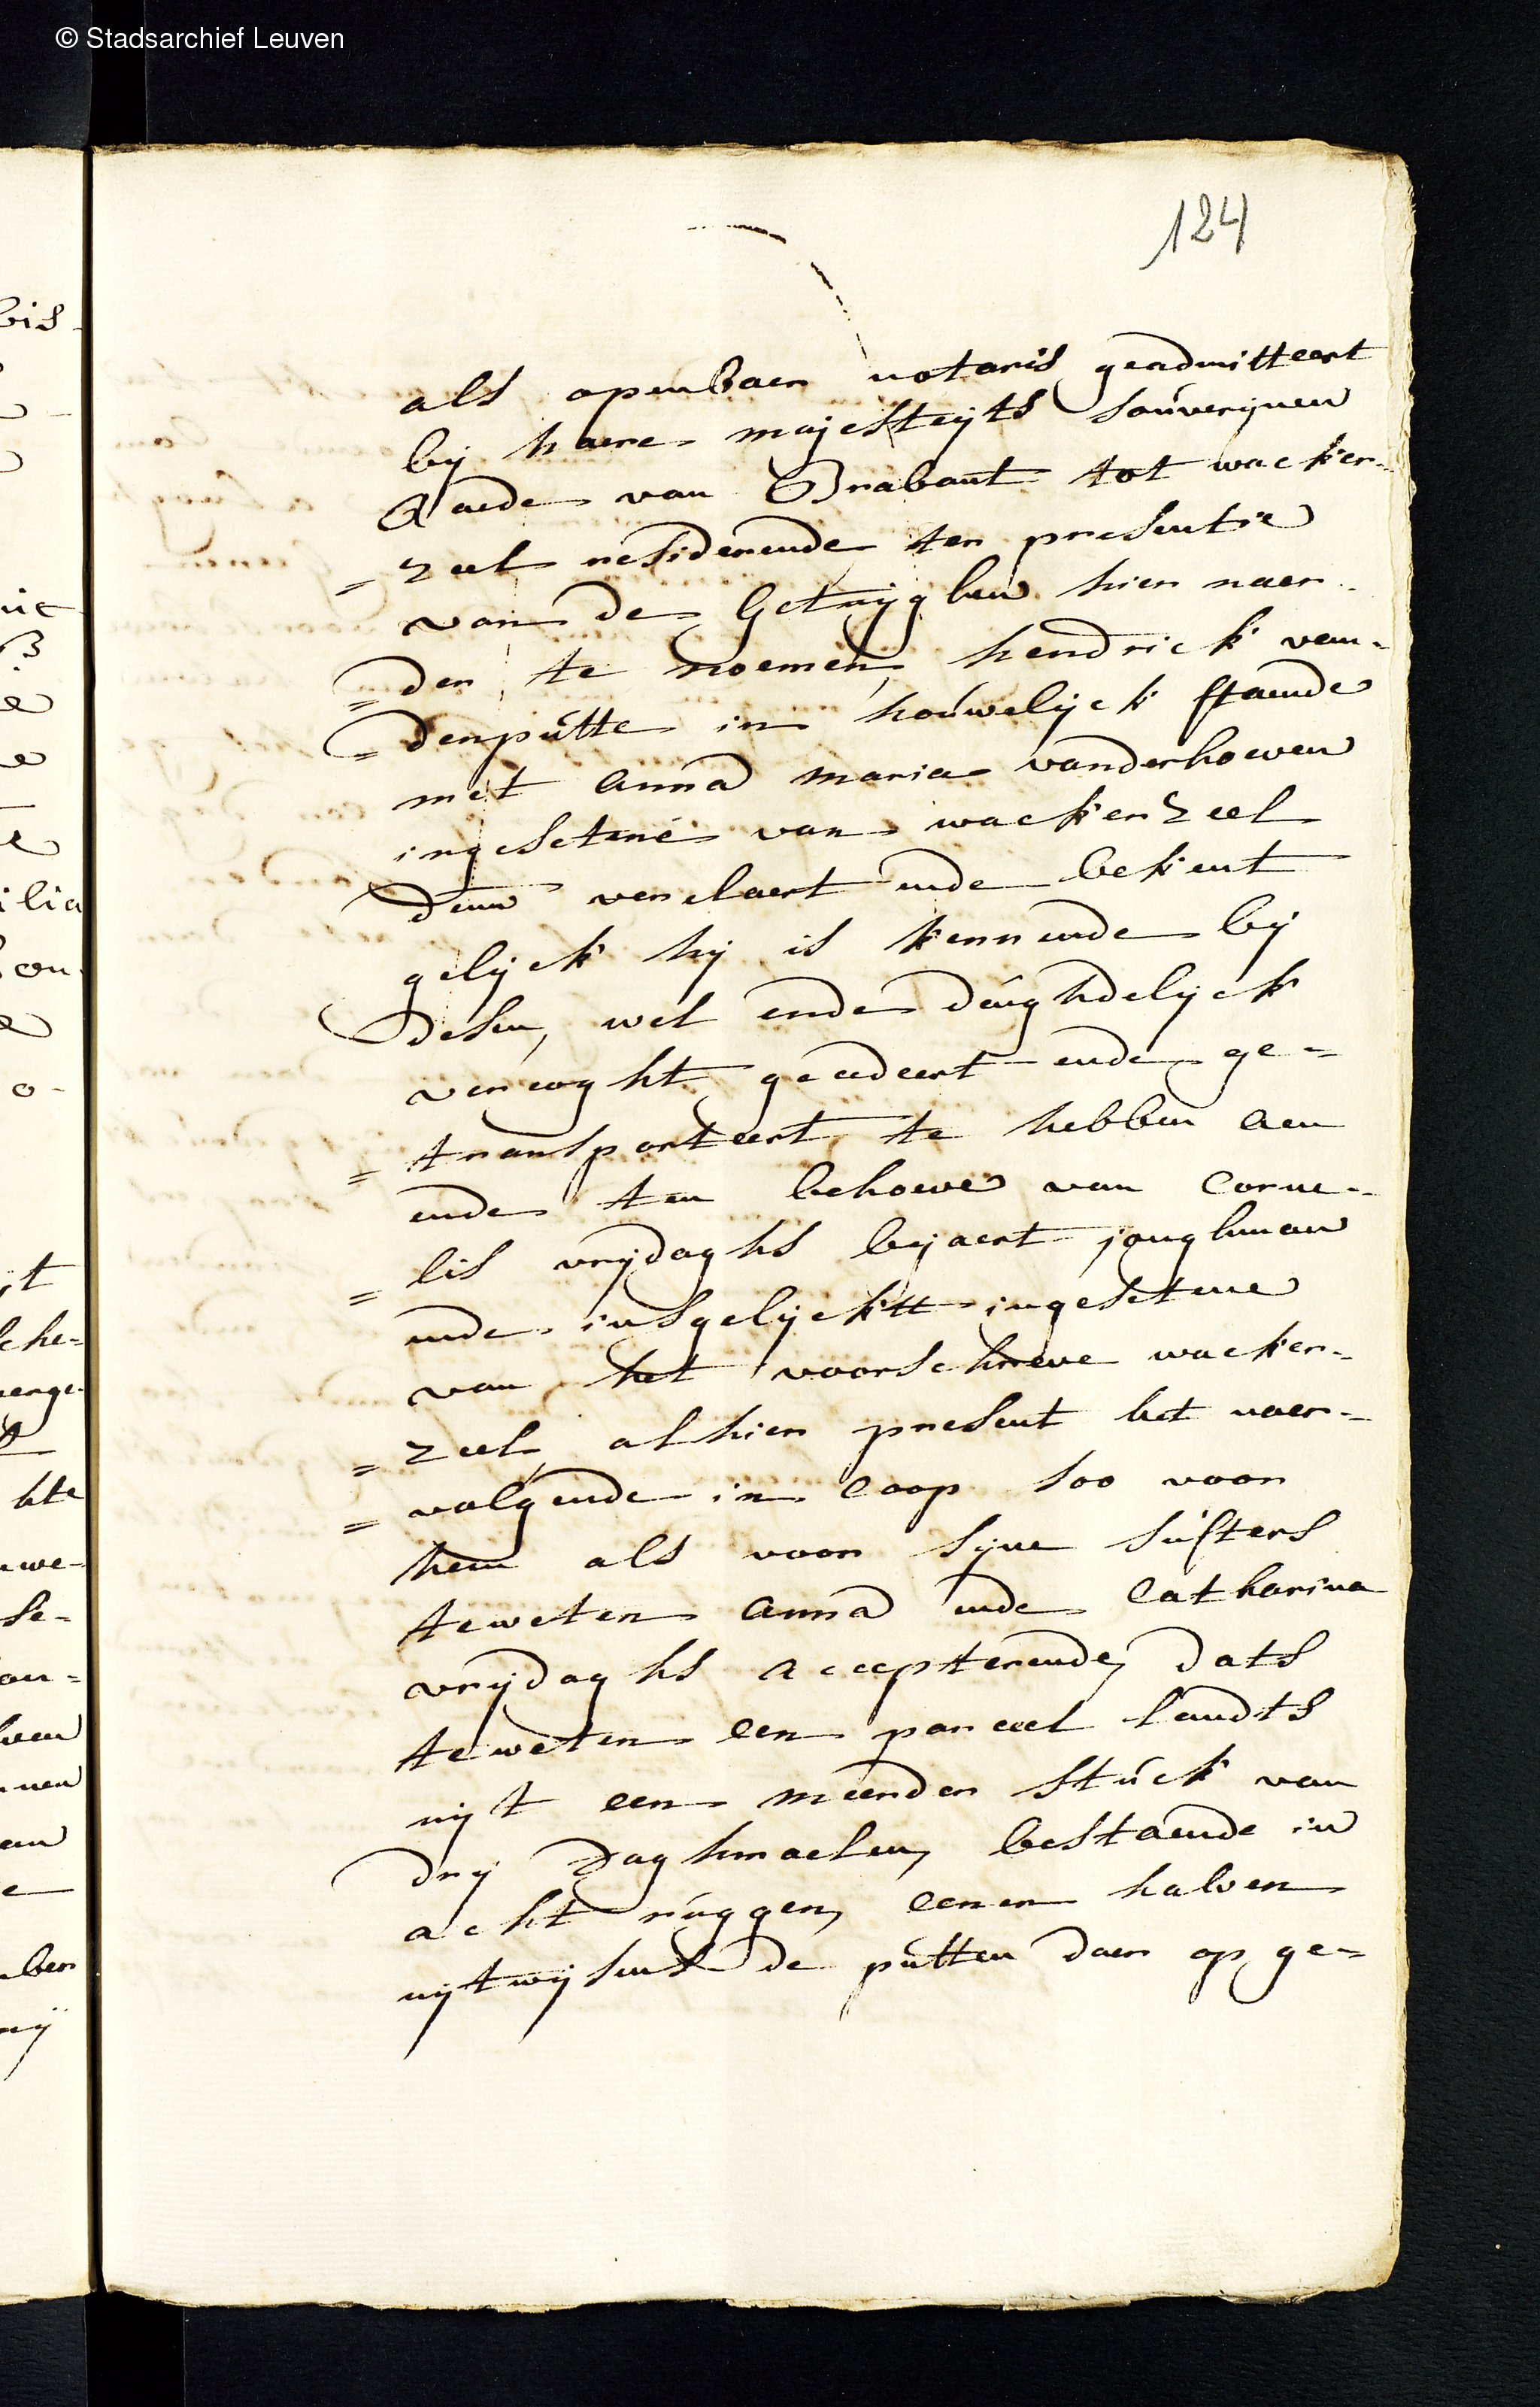 © Stadsarchief Leuven
124
als openbaer notaris geadmitteert
bij haere majesteijts souverijnen
Raede van Brabant tot wacker-
=zeel resideerende ter presentie
van de Getuijghen hier naer
=der te noemen, hendrick van-
=denputte in houwelijck staende
met anna maria vanderhoeven
ingesetene van wackerzeel
deux verclaert ende bekent
gelijck hij is kennende bij
desen, wel ende deughdelijck
vercoght gecedeert ende ge-
=transporteert te hebben aen
ende ten behoeve van Corne-
=lis vrijdaghs bejaert jonghman
ende insgelijckx ingesetene
van het voorschreve wacker-
=zeel, alhier present het naer-
=volgende in coop soo voor
hem als voor syne susters
teweten anna ende Catharina
vrijdaghs accepterende, dats
teweten een parceel landts
uijt een meerder stuck van
drij daghmaelen, bestaende in
acht ruggen, eenen halven
uijtwijsens de putten daer op ge-